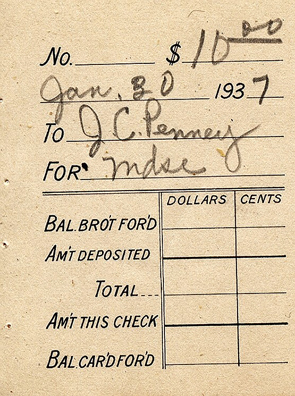 No. $ 10 00
Jan. 30 1937
To J C. Penney
FOR. mdse
DOLLARS CENTS
BAL. BRO'T FOR'D
AM'T DEPOSITED
TOTAL...
AM'T THIS CHECK
BAL. CAR'D FOR'D